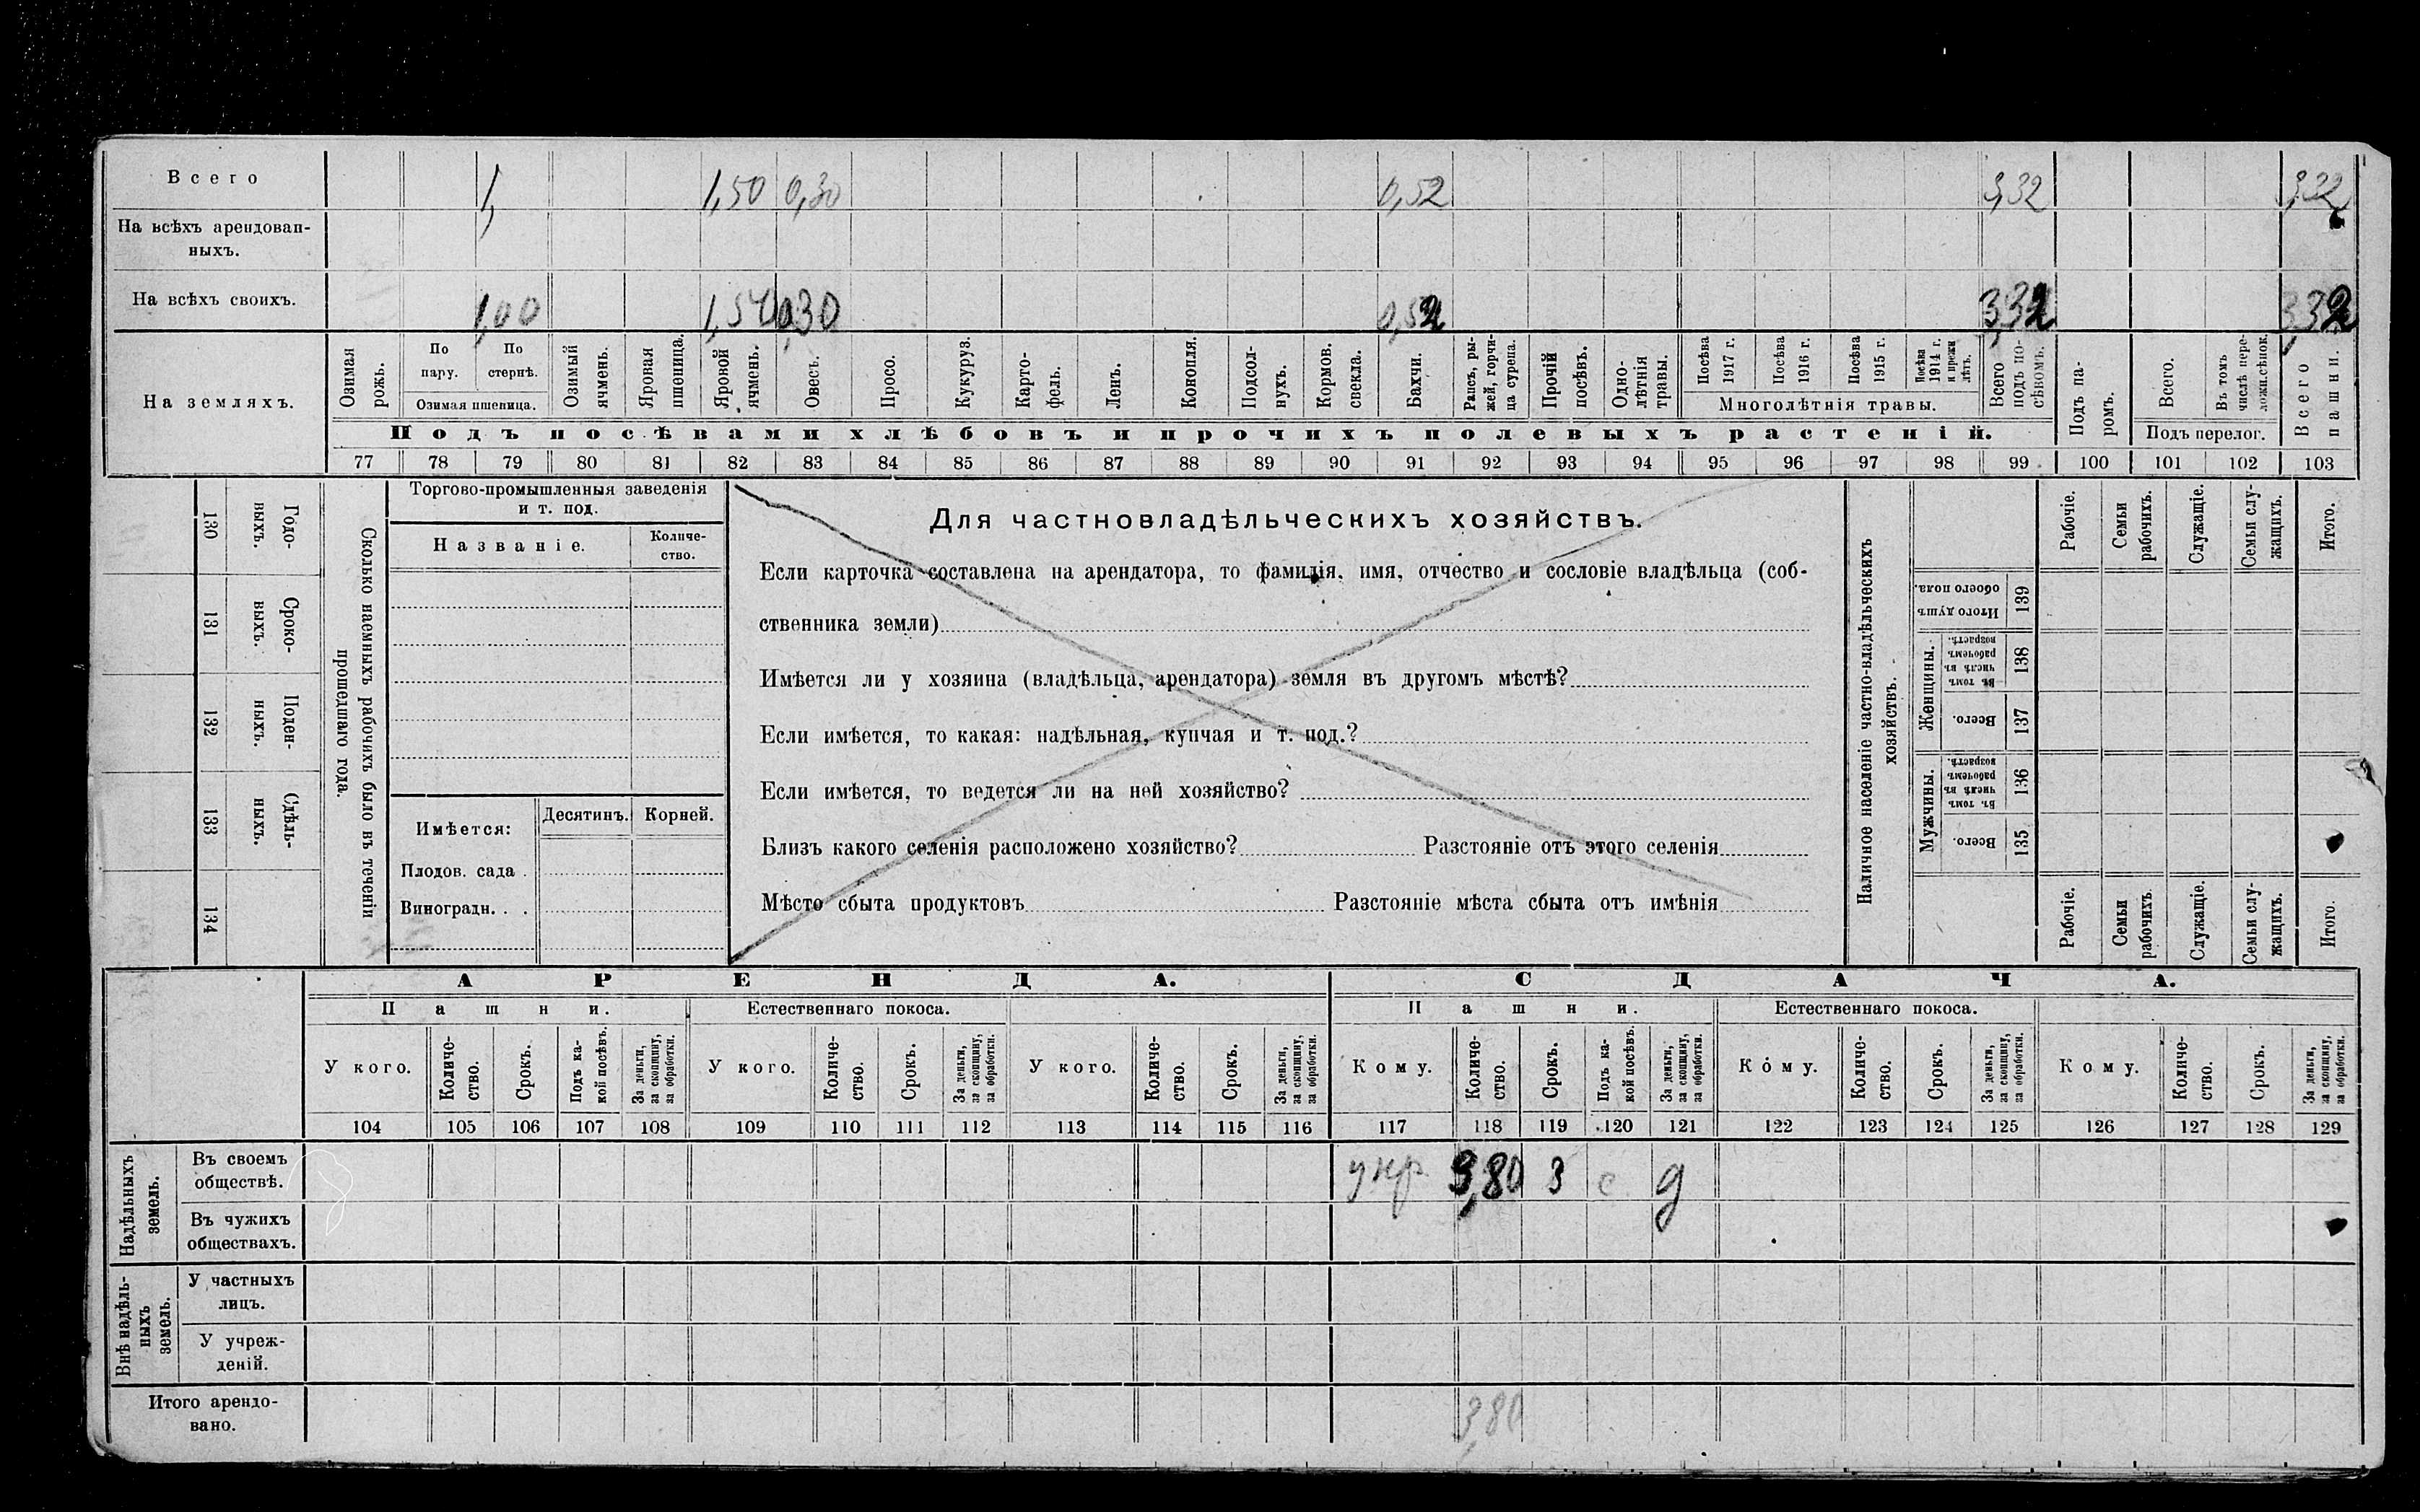 Всего 1, 1,50 0,30 0,52 3,32 3,32
На всѣхъ арендован-
ныхъ.
На всѣхъ своихъ. 1,00 1,50 0,30 0,52 3,32 3,32
На земляхъ.
Озимая рожь.
По пару.
По стернѣ.
Озимая пшеница.
Озимый ячмень.
Яровая пшеница.
Яровой ячмень.
Овесъ.
Просо.
Кукуруз.
Карто-
фель.
Ленъ.
Конопля.
Подсол-
нухъ.
Кормов.
свекла.
Бахчи.
Рапсъ, ры-
жей, горчи-
ца сурепа.
Прочій
посѣвъ.
Одно-
лѣтнія
травы.
Посѣва
1917 г.
Посѣва
1916 г.
Посѣва
1915 г.
Посѣва
1914 г.
и прежн
лѣтъ.
Многолѣтнія травы.
Всего
подъ по-
сѣвомъ.
Подъ па-
ромъ.
Всего.
Въ томъ
числѣ пере-
ложн.сѣнок.
Подъ перелог.
Всего
пашни.
Подъ посѣвами хлѣбовъ и прочихъ полевыхъ растеній.
77 78 79 80 81 82 83 84 85 86 87 88 89 90 91 92 93 94 95 96 97 98 99 100 101 102 103
130 Годо-
ныхъ.
131 Сроко-
выхъ.
132 Поден-
ныхъ.
133 Сдѣль-
ныхъ.
134
Сколько наемныхъ рабочихъ было въ теченіи
прошедшаго года.
Торгово-промышленныя заведенія
и т. под.
Названіе.
Количе-
ство.
Имѣется:
Десятинъ.
Корней.
Плодов. сада .
Виноградн. . .
Для частновладѣльческихъ хозяйствъ.
Если карточка составлена на арендатора, то фамилія, имя, отчество и сословіе владѣльца (соб-
ственника земли)
Имѣется ли у хозяина (владѣльца, арендатора) земля въ другомъ мѣстѣ?
Если имѣется, то какая: надѣльная, купчая и т. под.?
Если имѣется, то ведется ли на ней хозяйство?
Близъ какого селенія расположено хозяйство? Разстояніе отъ этого селенія
Мѣсто сбыта продуктовъ Разстояніе мѣста сбыта отъ имѣнія
Наличное населеніе частно-владѣльческихъ
хозяйствъ.
Рабочіе.
Семьи
рабочихъ.
Служащіе.
Семьи слу-
жащихъ.
Итого.
Итого душъ
обоего пола.
139
Женщины.
Въ томъ
числѣ въ
рабочемъ
возрастѣ.
138
Всего.
137
Мужчины.
Въ томъ
числѣ въ
рабочемъ
возрастѣ.
136
Всего.
135
Рабочіе.
Семьи
рабочихъ.
Служащіе.
Семьи слу-
жащихъ.
Итого.
АРЕНДА. СДАЧА.
Пашни. Естественнаго покоса. Пашни. Естественнаго покоса.
У кого.
Количе-
ство.
Срокъ.
Подъ ка-
кой посѣвъ.
За деньги,
за скопщину,
за обработки.
У кого.
Количе-
ство.
Срокъ.
За деньги,
за скопщину,
за обработки.
У кого.
Количе-
ство.
Срокъ.
За деньги,
за скопщину,
за обработки.
Кому.
Количе-
ство.
Срокъ.
Подъ ка-
кой посѣвъ.
За деньги,
за скопщину,
за обработки.
Кому.
Количе-
ство.
Срокъ.
За деньги,
за скопщину,
за обработки.
Кому.
Количе-
ство.
Срокъ.
За деньги,
за скопщину,
за обработки.
104 105 106 107 108 109 110 111 112 113 114 115 116 117 118 119 120 121 122 123 124 125 126 127 128 129
Надѣльныхъ
земель.
Въ своемъ
обществѣ. 3,80 3 с д
Въ чужихъ
обществахъ.
Внѣ надѣль-
ныхъ
земель.
У частныхъ
лицъ.
У учреж-
деній.
Итого арендо-
вано. 3,80